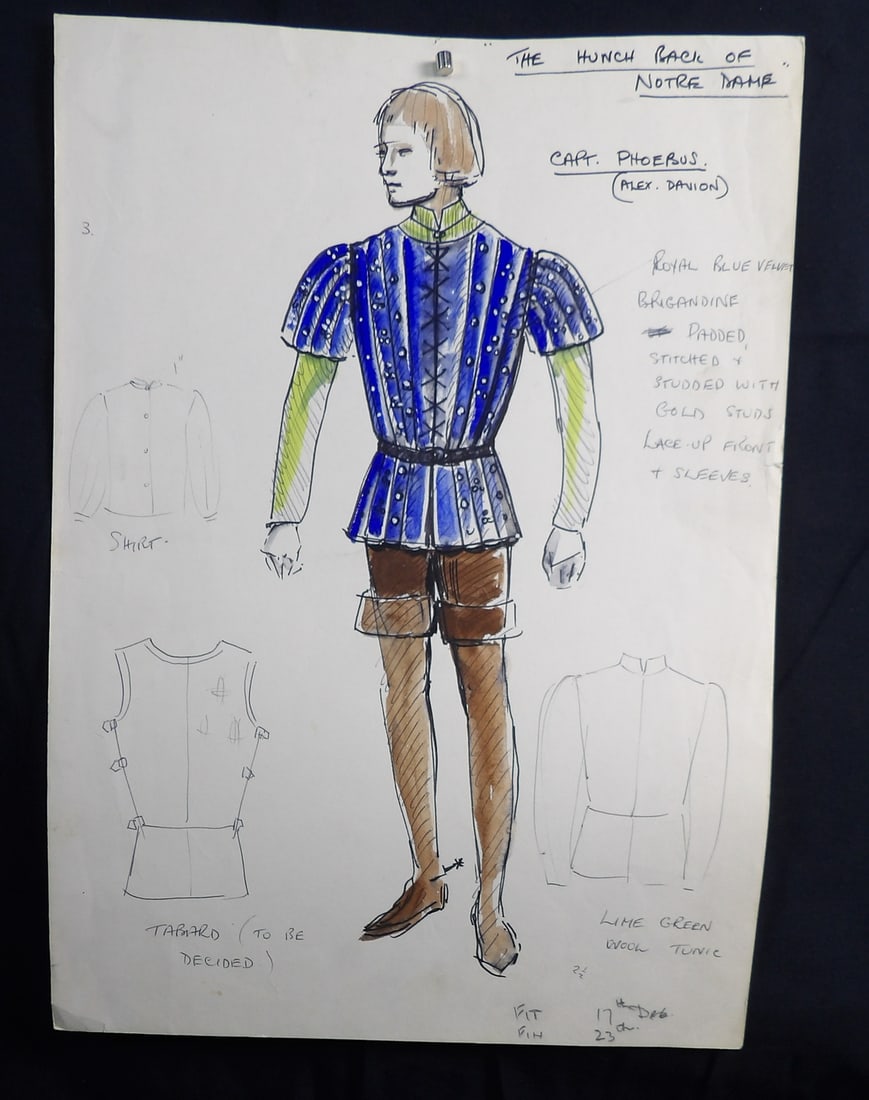 "THE HUNCH BACK OF
NOTRE DAME"
CAPT. PHOEBUS.
(ALEX. DAVION)
3.
ROYAL BLUE VELVET
BRIGANDINE
PADDED,
STITCHED &
STUDDED WITH
GOLD STUDS
LACE-UP FRONT
+ SLEEVES.
1"
SHIRT.
TABARD (TO BE
DECIDED)
LIME GREEN
WOOL TUNIC
2½
FIT 17th Dec.
FIN 23